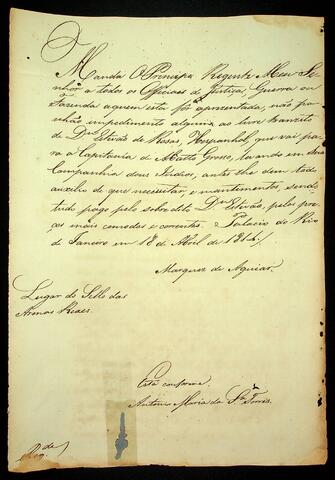 Manda O Principe Regente Meu Se-
nhor a todos os Officiaes de Justiça, Guerra ou
Fazenda aquem esta fôr apresentada, não po-
nhão impedimento algum ao livre tranzito
de D.ⁿ Estevão de Rosas, Hespanhol, que vai pa-
ra a Capitania de Matto Grosso, levando em sua
Companhia dous Indios, antes lhe dem todo
auxilio de que necessitar, e mantimentos, sendo
tudo pago pelo sobredito D.ⁿ Estevão, pelos pre-
ços mais comodos e correntes. Palacio do Rio
de Janeiro em 18 de Abril de
Marquez de Aguiar.
Lugar do Sello das
Armas Reaes.
Está conforme
Antonio Maria da